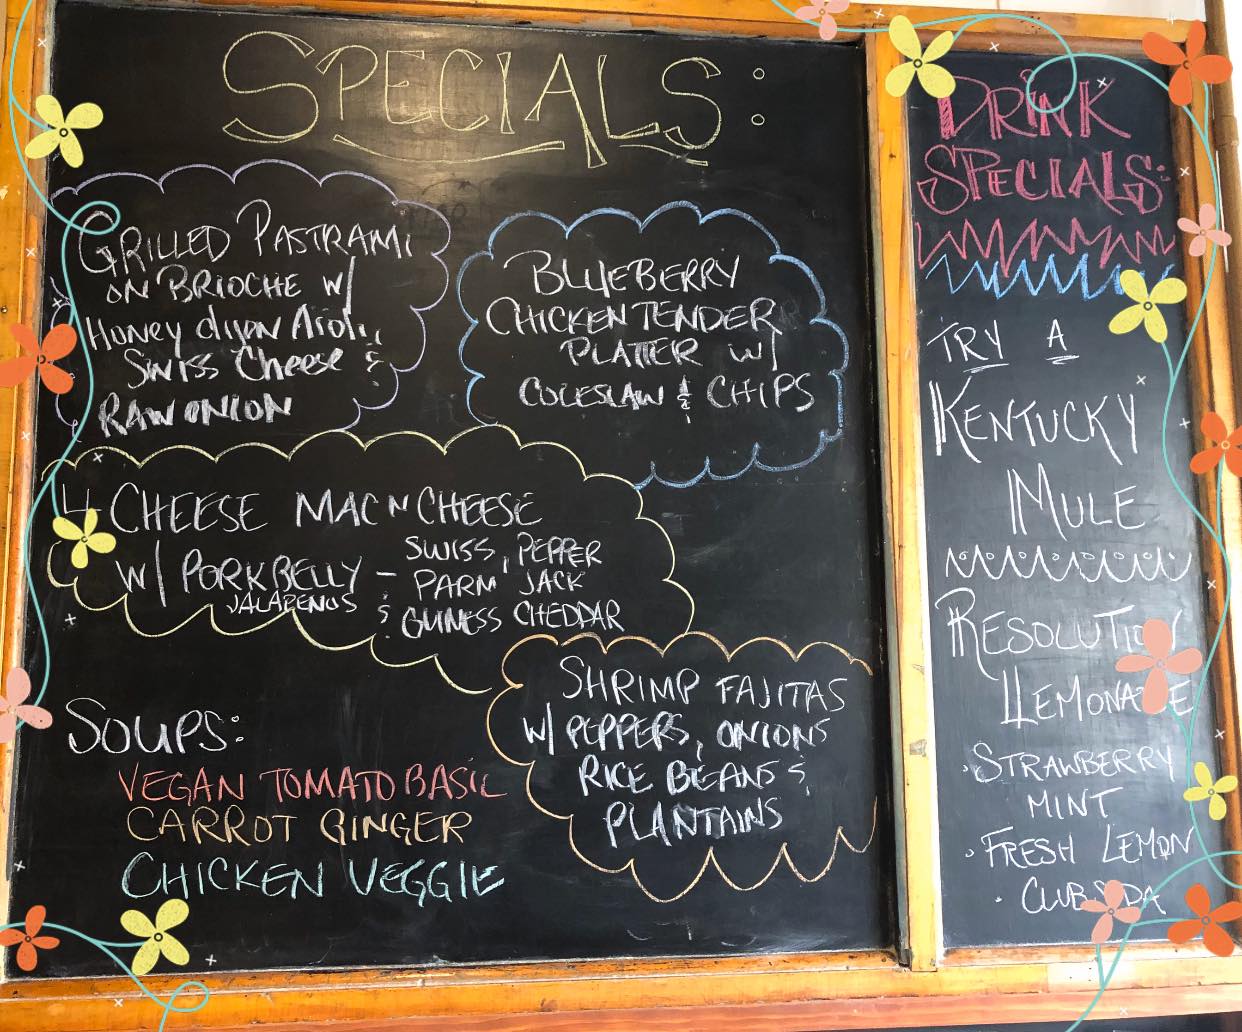 SPECIALS:
GRILLED PASTRAMI
ON BRIOCHE W/
Honey dijon Aioli,
Swiss Cheese &
RAW ONION
BLUEBERRY
CHICKEN TENDER
PLATTER W/
COLESLAW & CHIPS
4 CHEESE MAC N CHEESE
W/ PORKBELLY –
JALAPENOS
SWISS, PEPPER
PARM JACK
& GUINESS CHEDDAR
SHRIMP FAJITAS
W/ PEPPERS, ONIONS
RICE BEANS &
PLANTAINS
SOUPS:
VEGAN TOMATO BASIL
CARROT GINGER
CHICKEN VEGGIE
DRINK
SPECIALS:
TRY A
KENTUCKY
MULE
RESOLUTION
LLEMONADE
· STRAWBERRY
MINT
· FRESH LEMON
· CLUB SODA